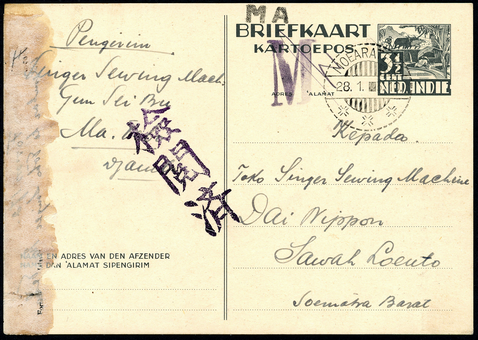 MA
BRIEFKAART
KARTOEPOS
M
ADRES ALAMAT
MOEARA
28.1.
3½
CENT
NED. INDIE
Pengirim
Singer Sewing Mach.
Gun Sei Bu
Ma.
Djambi
検閲済
EN ADRES VAN DEN AFZENDER
DAN ALAMAT SIPENGIRIM
Kepada
Toko Singer Sewing Machine
Dai Nippon
Sawah Loento
Soematra Barat